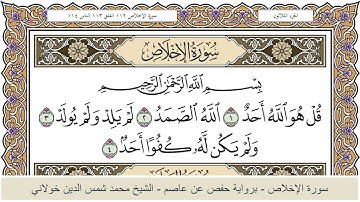 الجزء الثلاثون
سورة الإخلاص ١١٢ الفلق ١١٣ الناس ١١٤
سُورَةُ الإِخْلَاصِ
بِسْمِ اللَّهِ الرَّحْمَٰنِ الرَّحِيمِ
قُلْ هُوَ اللَّهُ أَحَدٌ ١ اللَّهُ الصَّمَدُ ٢ لَمْ يَلِدْ وَلَمْ يُولَدْ ٣
وَلَمْ يَكُن لَّهُ كُفُوًا أَحَدٌ ٤
سورة الإخلاص - برواية حفص عن عاصم - الشيخ محمد شمس الدين خولاني